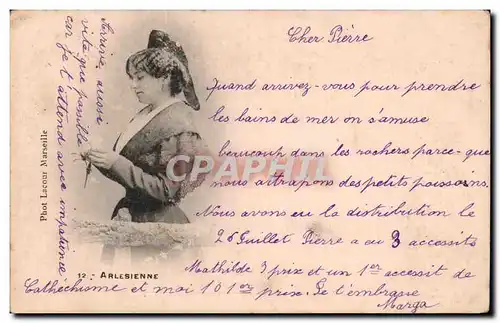 Cher Pierre
Quand arrivez-vous pour prendre
les bains de mer on s'amuse
beaucoup dans les rochers parce-que
nous attrapons des petits poissons.
Nous avons eu la distribution le
26 Juillet Pierre a au 3 accessits
Mathilde 3 prix et un 1er accessit de
Cathéchisme et moi 10 1er prix. Je t'embrasse
Marga
Arrive aussi
vite que possible
car je t'attend avec impatience
Phot Lacour Marseille
12 - ARLESIENNE
CAPHPI